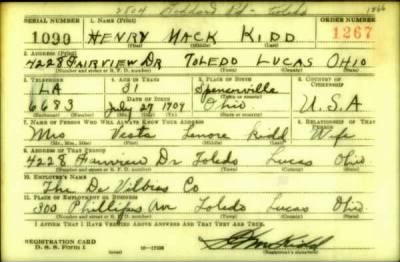 2504 Goddard Rd - Toledo 1866
SERIAL NUMBER 1. NAME (Print) ORDER NUMBER
1090 HENRY MACK KIDD 1267
(First) (Middle) (Last)
2. ADDRESS (Print)
4228 FAIRVIEW DR TOLEDO LUCAS OHIO
(Number and street or R. F. D. number) (Town) (County) (State)
3. TELEPHONE 4. AGE IN YEARS 5. PLACE OF BIRTH 6. COUNTRY OF CITIZENSHIP
LA 31 Spencerville
DATE OF BIRTH
6683 July 27 1909 Ohio U.S.A
7. NAME OF PERSON WHO WILL ALWAYS KNOW YOUR ADDRESS 8. RELATIONSHIP OF THAT PERSON
Mrs Vesta Lenore Kidd Wife
(Mr., Mrs., Miss) (First) (Middle) (Last)
9. ADDRESS OF THAT PERSON
4228 Fairview Dr Toledo Lucas Ohio
(Number and street or R. F. D. number) (Town) (County) (State)
10. EMPLOYER'S NAME
The De Vilbiss Co
11. PLACE OF EMPLOYMENT OR BUSINESS
300 Phillips Ave Toledo Lucas Ohio
(Number and street or R. F. D. number) (Town) (County) (State)
I AFFIRM THAT I HAVE VERIFIED ABOVE ANSWERS AND THAT THEY ARE TRUE.
REGISTRATION CARD
D. S. S. Form 1